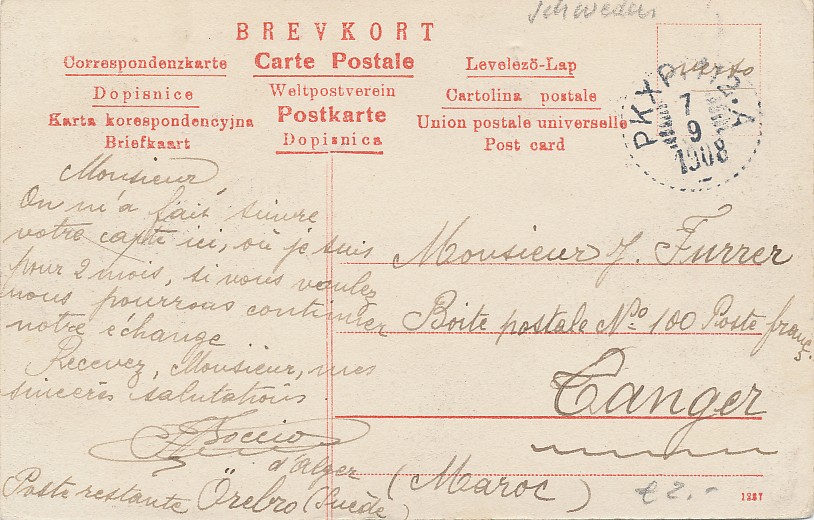 Schweden
BREVKORT
Correspondenzkarte
Carte Postale
Levelező-Lap
Dopisnice
Weltpostverein
Cartolina postale
Karta korespondencyjna
Postkarte
Union postale universelle
Briefkaart
Dopisnica
Post card
verso
PKXP
7
9
1908
Monsieur,
On m'a fait suivre
votre carte ici, où je suis
pour 2 mois, si vous voulez
nous pourrons continuer
notre échange
Recevez, Monsieur, mes
sincères salutations.
d'Alger
Poste restante Örebro (Suède)
Monsieur J. Furrer
Boite postale No 100 Poste franç.
Tanger
(Maroc)
€ 2.-
1287